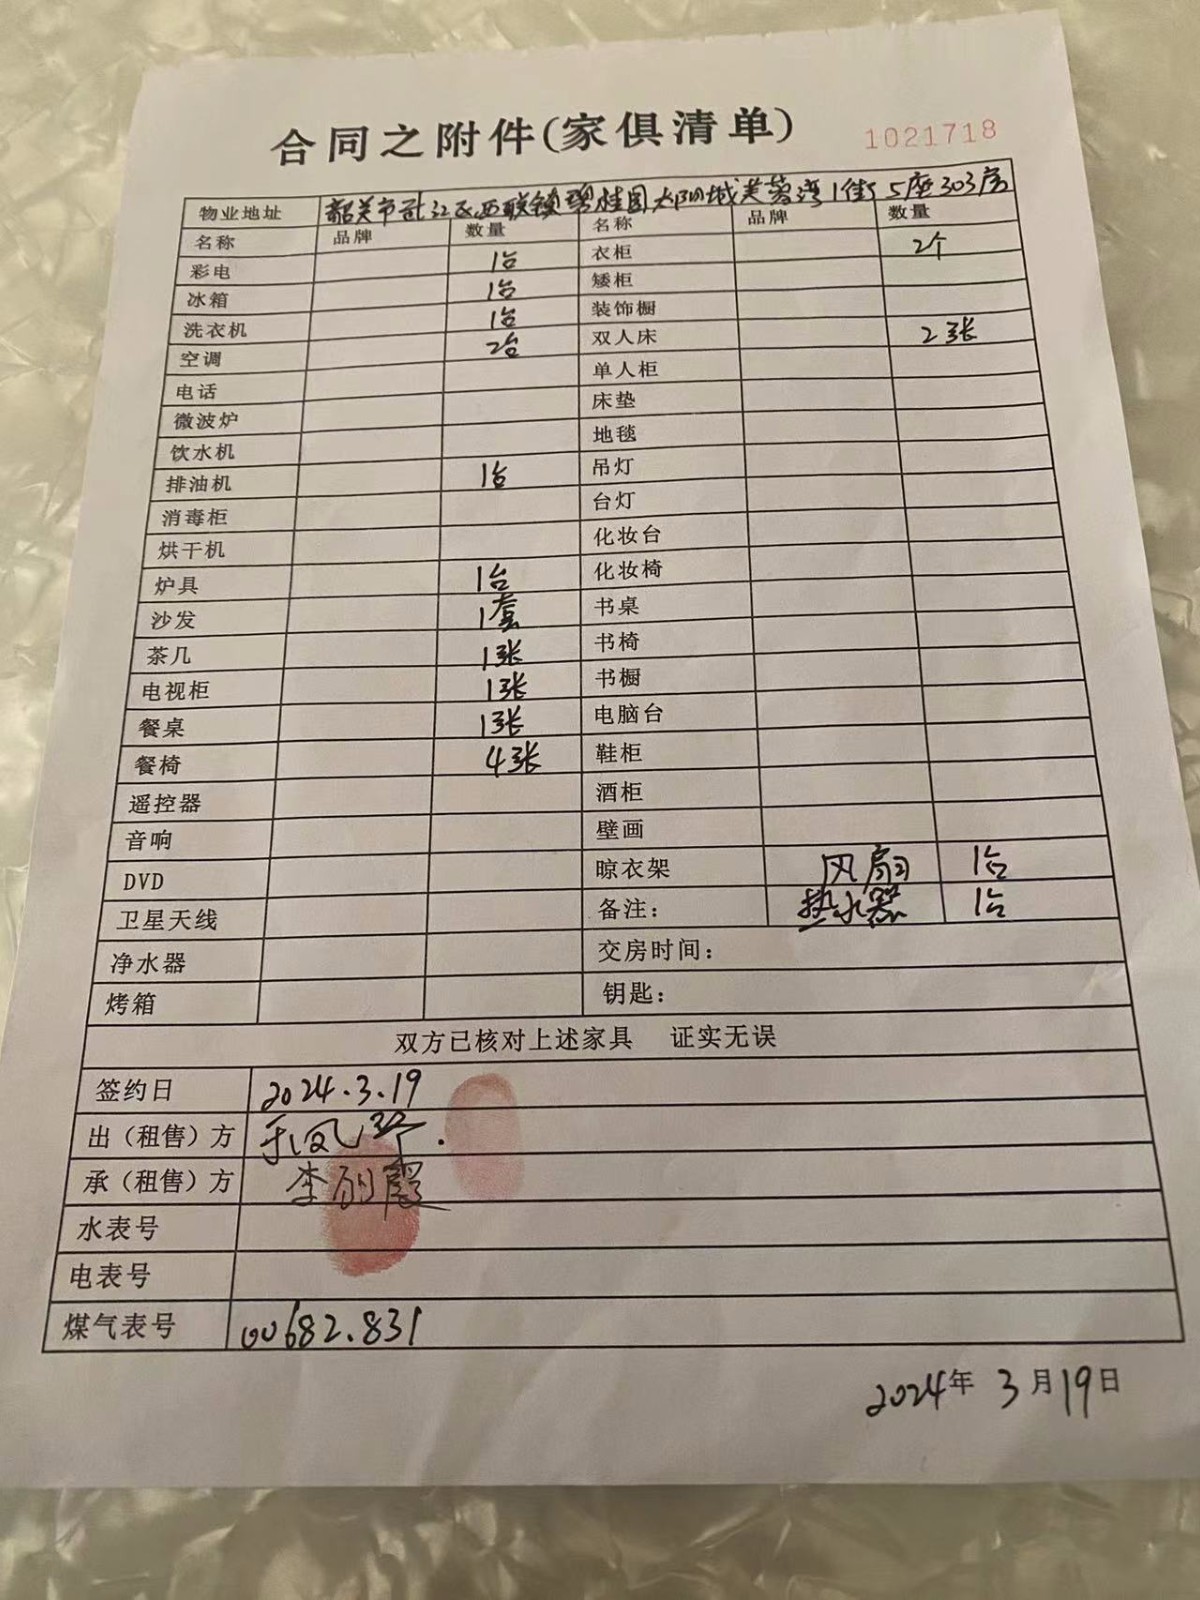 合同之附件(家俱清单)
1021718
物业地址 韶关市武江区西联镇碧桂园太阳城芙蓉湾1街5座303房
名称 品牌 数量 名称 品牌 数量
彩电 1台 衣柜 2个
冰箱 1台 矮柜
洗衣机 1台 装饰橱
空调 2台 双人床 2张
电话 单人柜
微波炉 床垫
饮水机 地毯
排油机 1台 吊灯
消毒柜 台灯
烘干机 化妆台
炉具 1台 化妆椅
沙发 1套 书桌
茶几 1张 书椅
电视柜 1张 书橱
餐桌 1张 电脑台
餐椅 4张 鞋柜
遥控器 酒柜
音响 壁画
DVD 晾衣架 风扇 1台
卫星天线 备注: 热水器 1台
净水器 交房时间:
烤箱 钥匙:
双方已核对上述家具 证实无误
签约日 2024.3.19
出(租售)方
承(租售)方 李丽霞
水表号
电表号
煤气表号 00682.831
2024年 3月19日